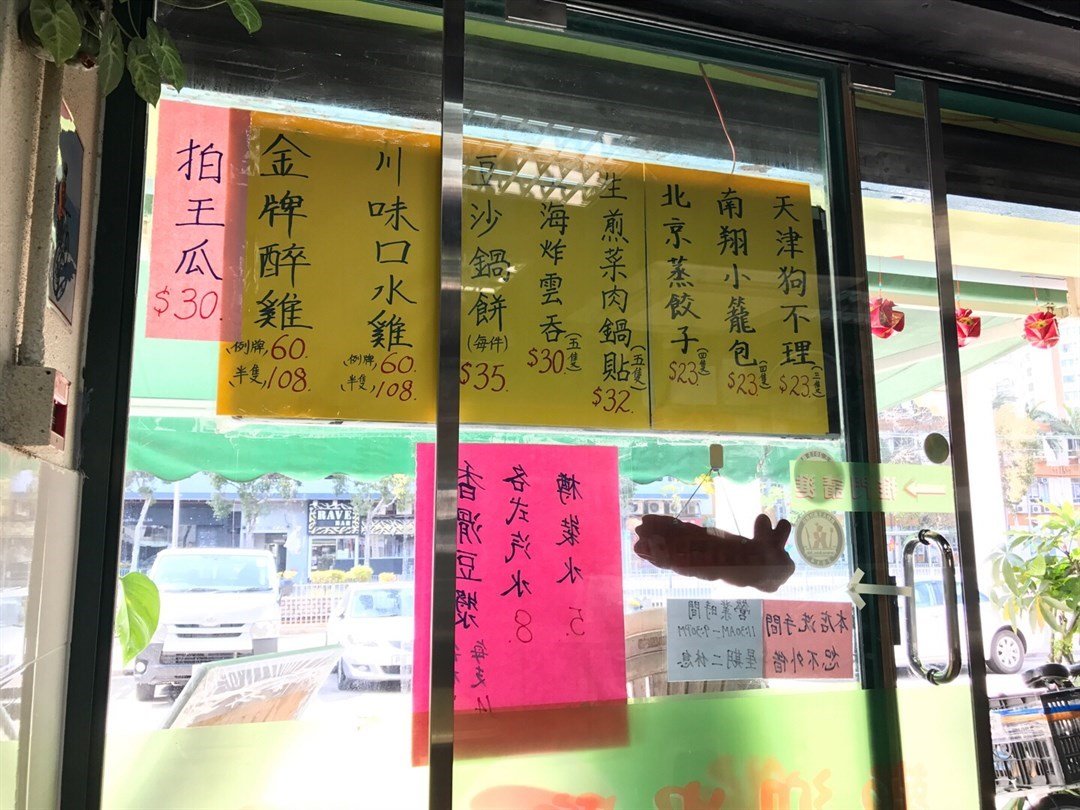 天津狗不理
(三隻)
$23.
南翔小籠包
(四隻)
$23.
北京蒸餃子
(四隻)
$23.
生煎菜肉鍋貼
(五隻)
$32.
上海炸雲吞
(五隻)
$30.
豆沙鍋餅
(每件)
$35
川味口水雞
例牌, 60.
半隻, 108
金牌醉雞
例牌, 60.
半隻, 108.
拍王瓜
$30.
樽裝水 5.
各式汽水 8
香滑豆漿 每支14
推門請進
營業時間
11:30AM－9:30PM
星期二休息
本店洗手間
恕不外借
RAVE
BAR